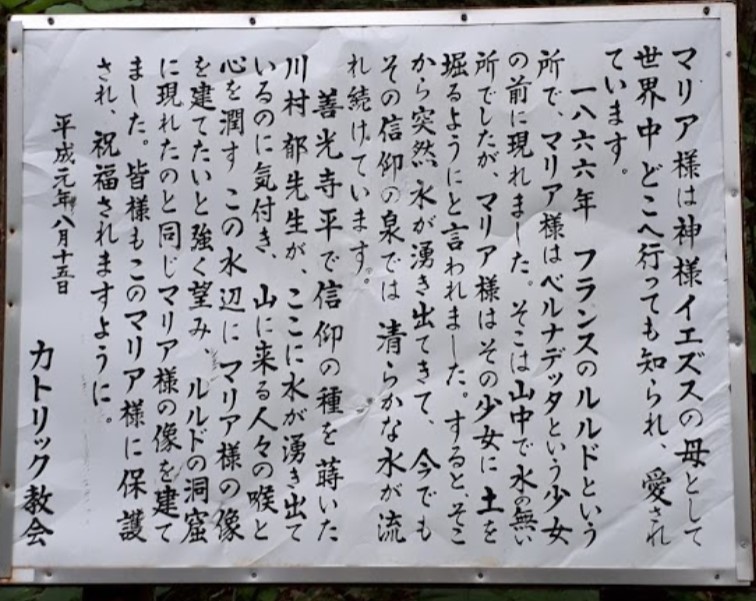 マリア様は神様イエズスの母として
世界中どこへ行っても知られ、愛され
ています。
一八六六年 フランスのルルドという
所で、マリア様はベルナデッタという少女
の前に現れました。そこは山中で水の無い
所でしたが、マリア様はその少女に土を
堀るようにと言われました。すると、そこ
から突然水が湧き出てきて、今でも
その信仰の泉では 清らかな水が流
れ続けています。
善光寺平で信仰の種を蒔いた
川村郁先生が、ここに水が湧き出て
いるのに気付き、山に来る人々の喉と
心を潤す この水辺に マリア様の像
を建てたいと強く望み、ルルドの洞窟
に現れたのと同じマリア様の像を建て
ました。皆様もこのマリア様に保護
され、祝福されますように。
平成元年八月十五日
カトリック教会